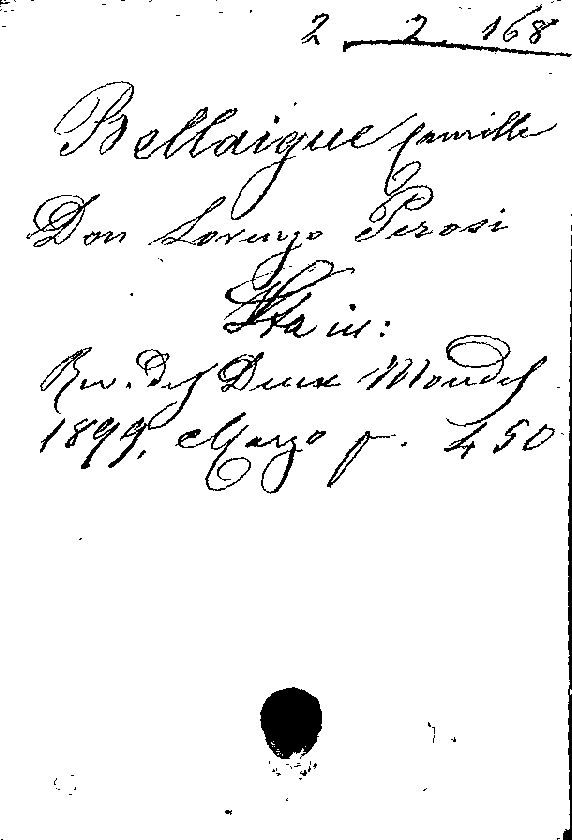 2 2. 168
Bellaigue Camille
Don Lorenzo Perosi
Sta in:
Rev. des Deux Mondes
1899. Marzo p. 450